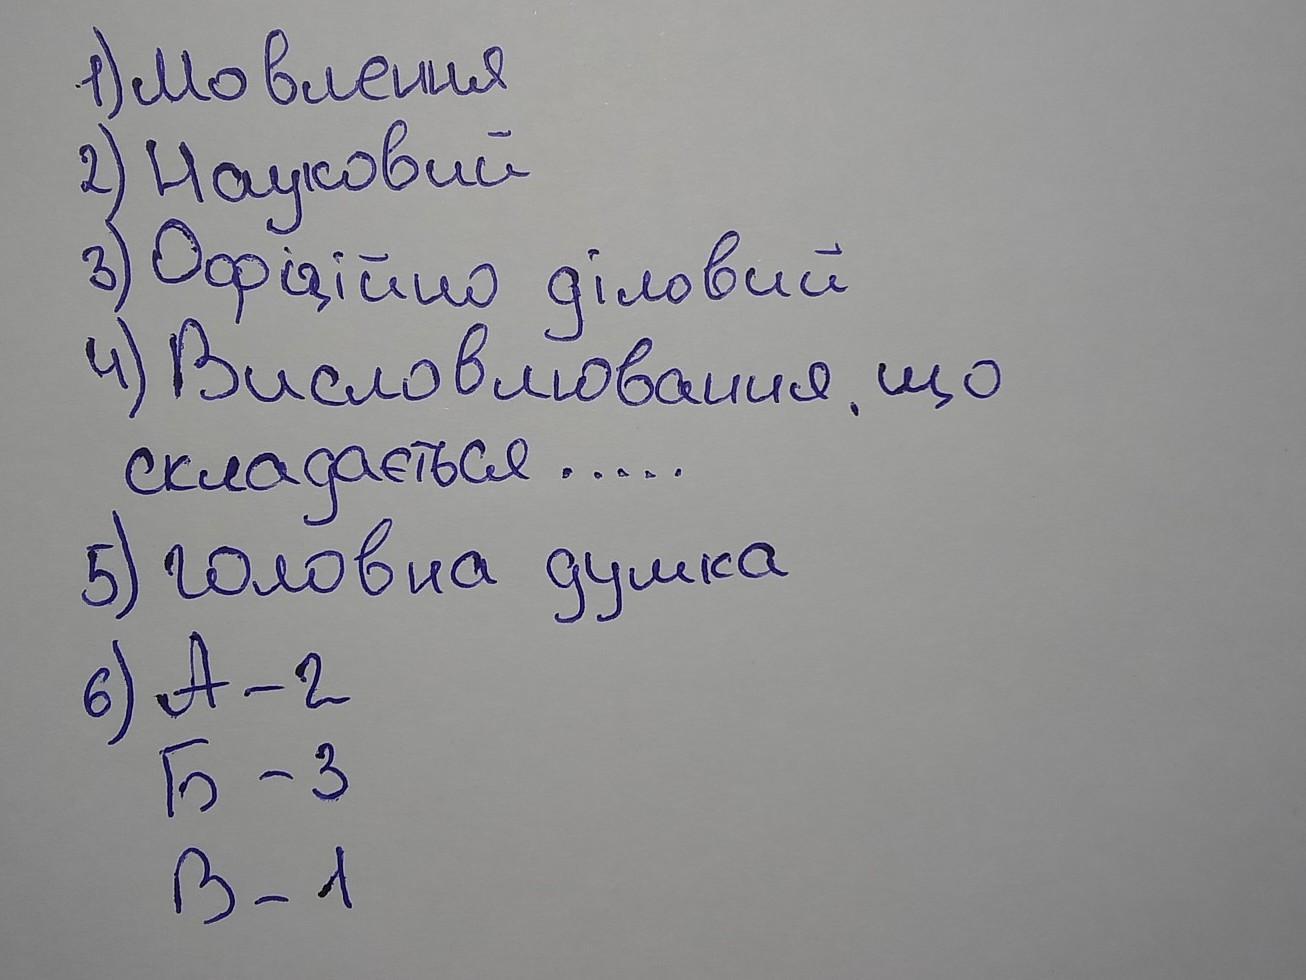 1) Мовлення
2) Науковий
3) Офіційно діловий
4) Висловлювання, що
складається .....
5) головна думка
6) А - 2
Б - 3
В - 1